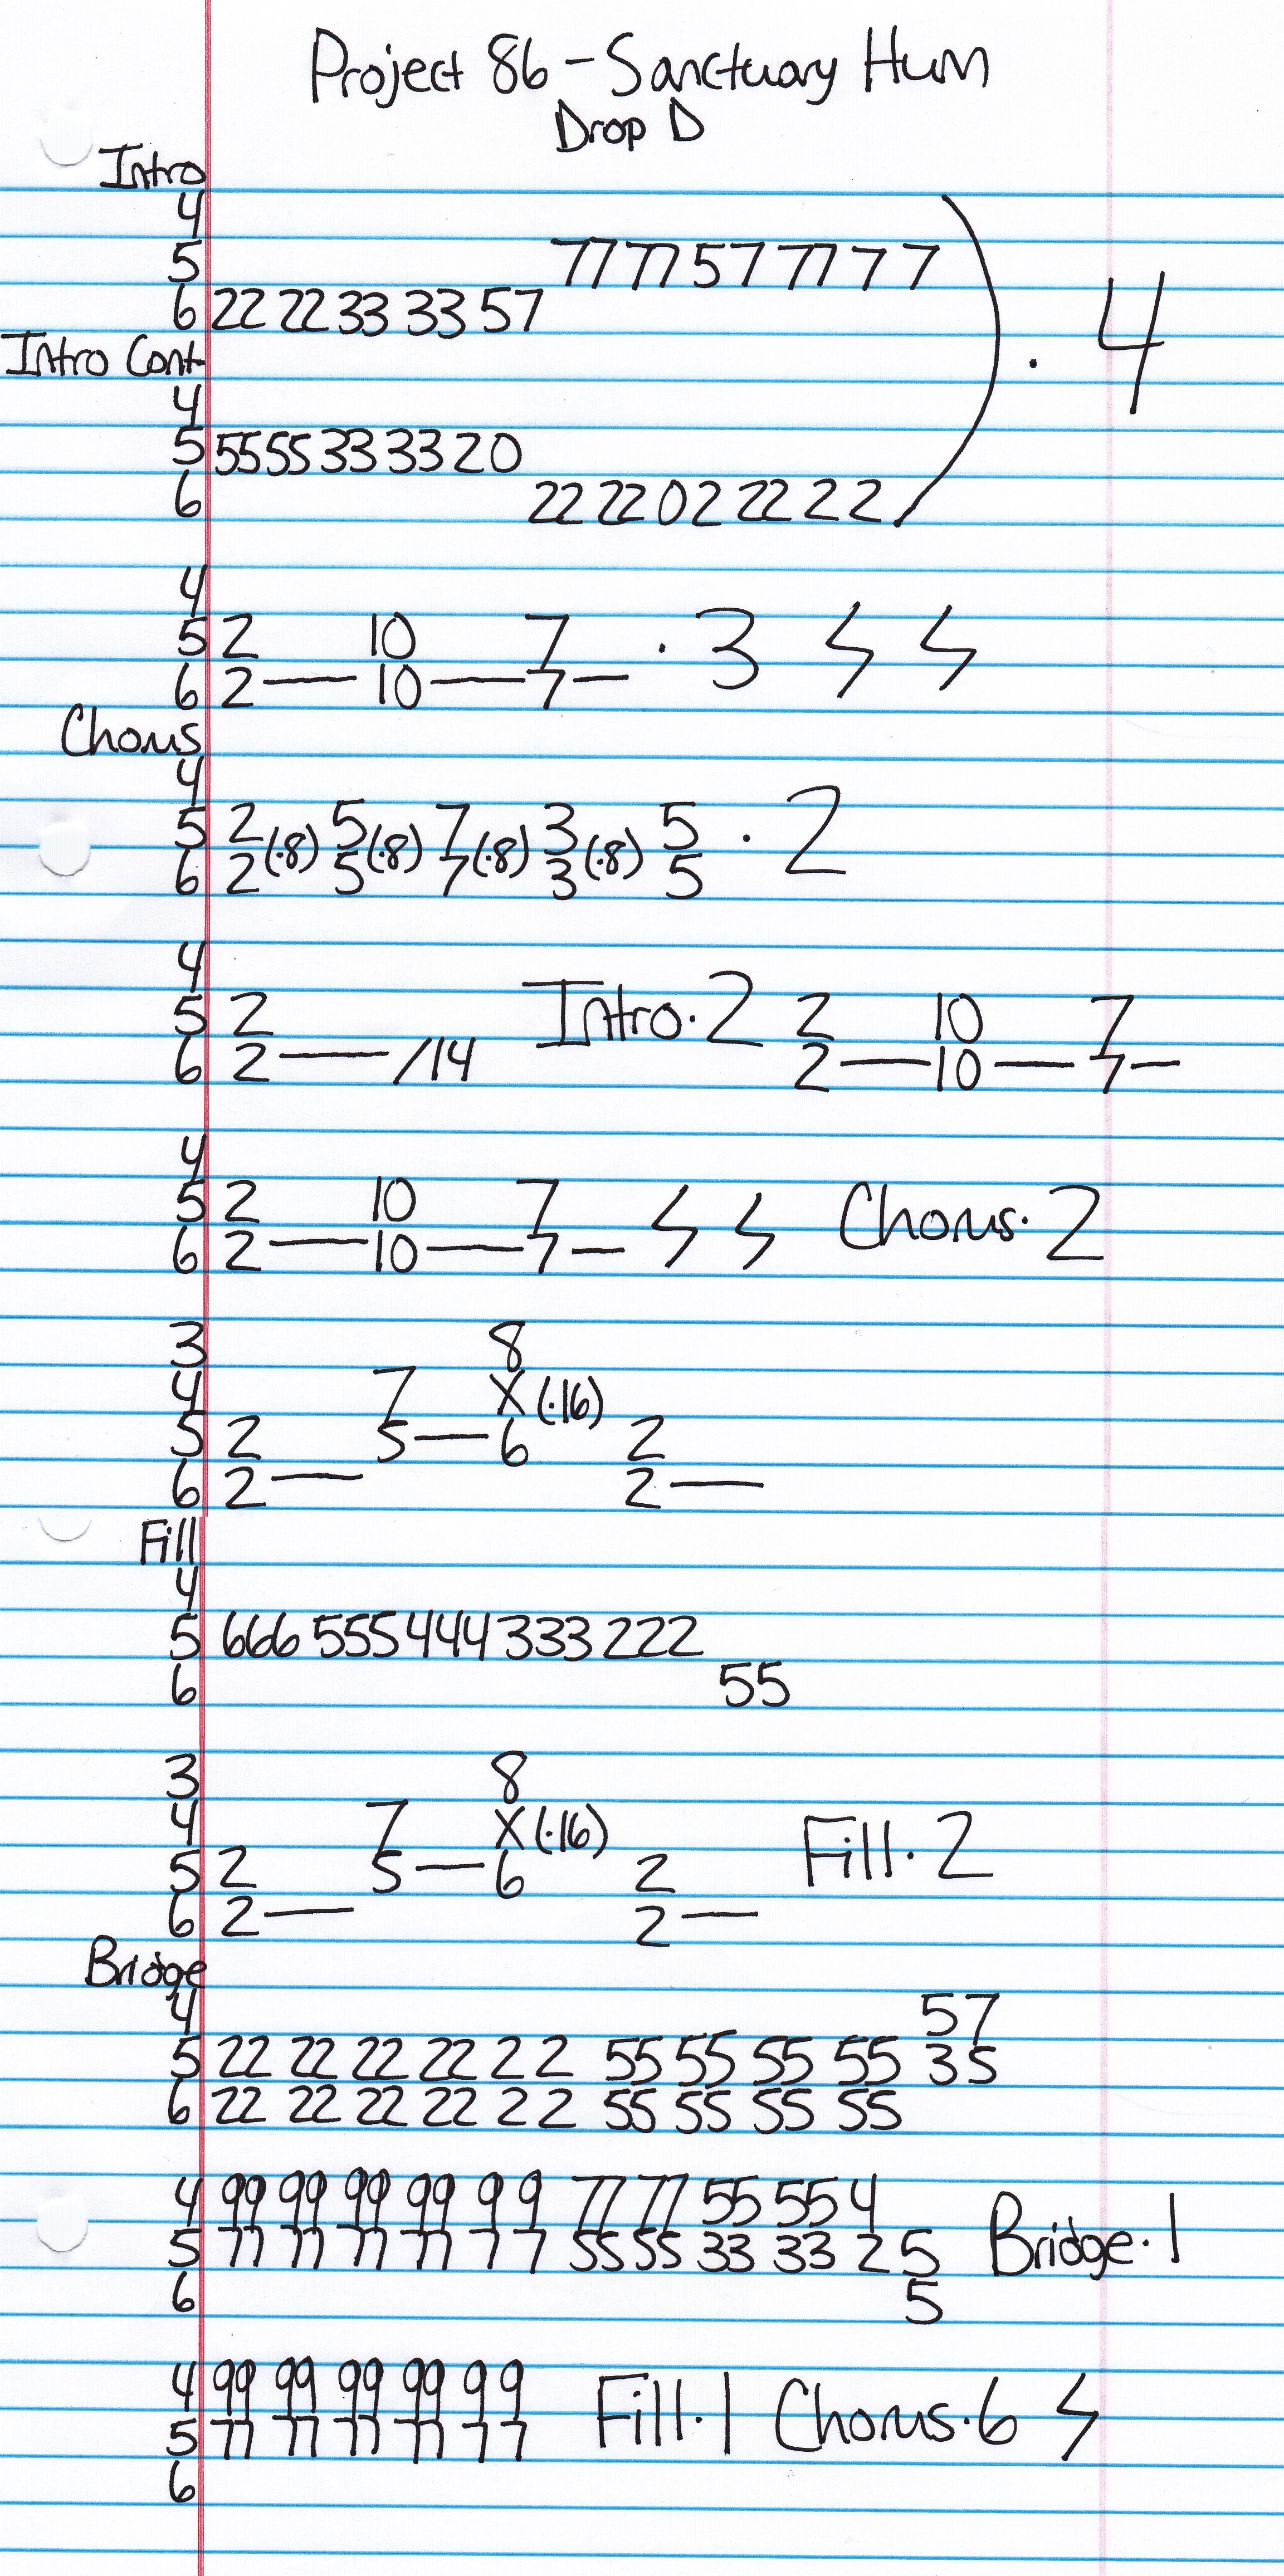 Project 86 - Sanctuary Hum
Drop D
Intro
4
5 7777577777 7
6 22 22 33 33 57
) · 4
Intro Cont.
4
5 5555 33 33 20
6 22 22 02 22 2 2
4
5 2 10 7 · 3 ϟ ϟ
6 2 — 10 — 7 —
Chorus
4
5 2 (·8) 5 (·8) 7 (·8) 3 (·8) 5 · 2
6 2 5 7 3 5
4
5 2 Intro · 2 2 10 7
6 2 — /14 2 — 10 — 7 —
4
5 2 10 7 ϟ ϟ Chorus · 2
6 2 — 10 — 7 —
3 8
4 7 X (·16)
5 2 5 — 6 2
6 2 — 2 —
Fill
4
5 666 555 444 333 222
6 55
3 8
4 7 X (·16) Fill · 2
5 2 5 — 6 2
6 2 — 2 —
Bridge
4 57
5 22 22 22 22 2 2 55 55 55 55 35
6 22 22 22 22 2 2 55 55 55 55
4 99 99 99 99 9 9 77 77 55 55 4
5 77 77 77 77 7 7 55 55 33 33 2 5 Bridge · 1
6 5
4 99 99 99 99 9 9 Fill · 1 Chorus · 6 ϟ
5 77 77 77 77 7 7
6